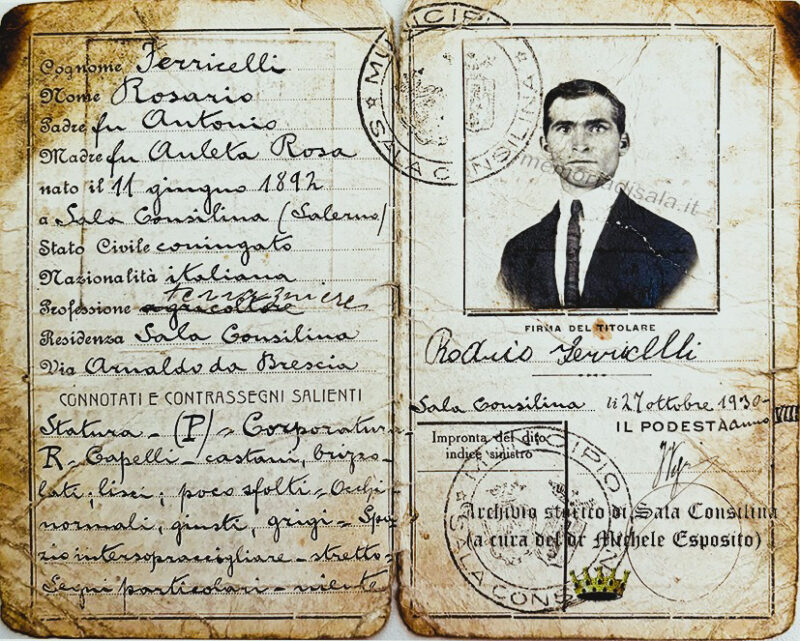 Cognome Ferricelli
Nome Rosario
Padre fu Antonio
Madre fu Auleta Rosa
nato il 11 giugno 1892
a Sala Consilina (Salerno)
Stato Civile coniugato
Nazionalità italiana
Professione agricoltore
Residenza Sala Consilina
Via Arnaldo da Brescia
CONNOTATI E CONTRASSEGNI SALIENTI
Statura - (P) - Corporatura
R - Capelli - castani, brizzo-
lati, lisci, poco sfolti - Occhi
normali, giusti, grigi - Spa-
zio intersopraccigliare - stretto -
Segni particolari - niente
MUNICIPIO
SALA CONSILINA
memoriadisala.it
FIRMA DEL TITOLARE
Ferricelli
Sala Consilina li 27 ottobre 1930 -
anno VIII
IL PODESTÀ
Impronta del dito
indice sinistro
MUNICIPIO
SALA CONSILINA
Archivio storico di Sala Consilina
(a cura del dr Michele Esposito)